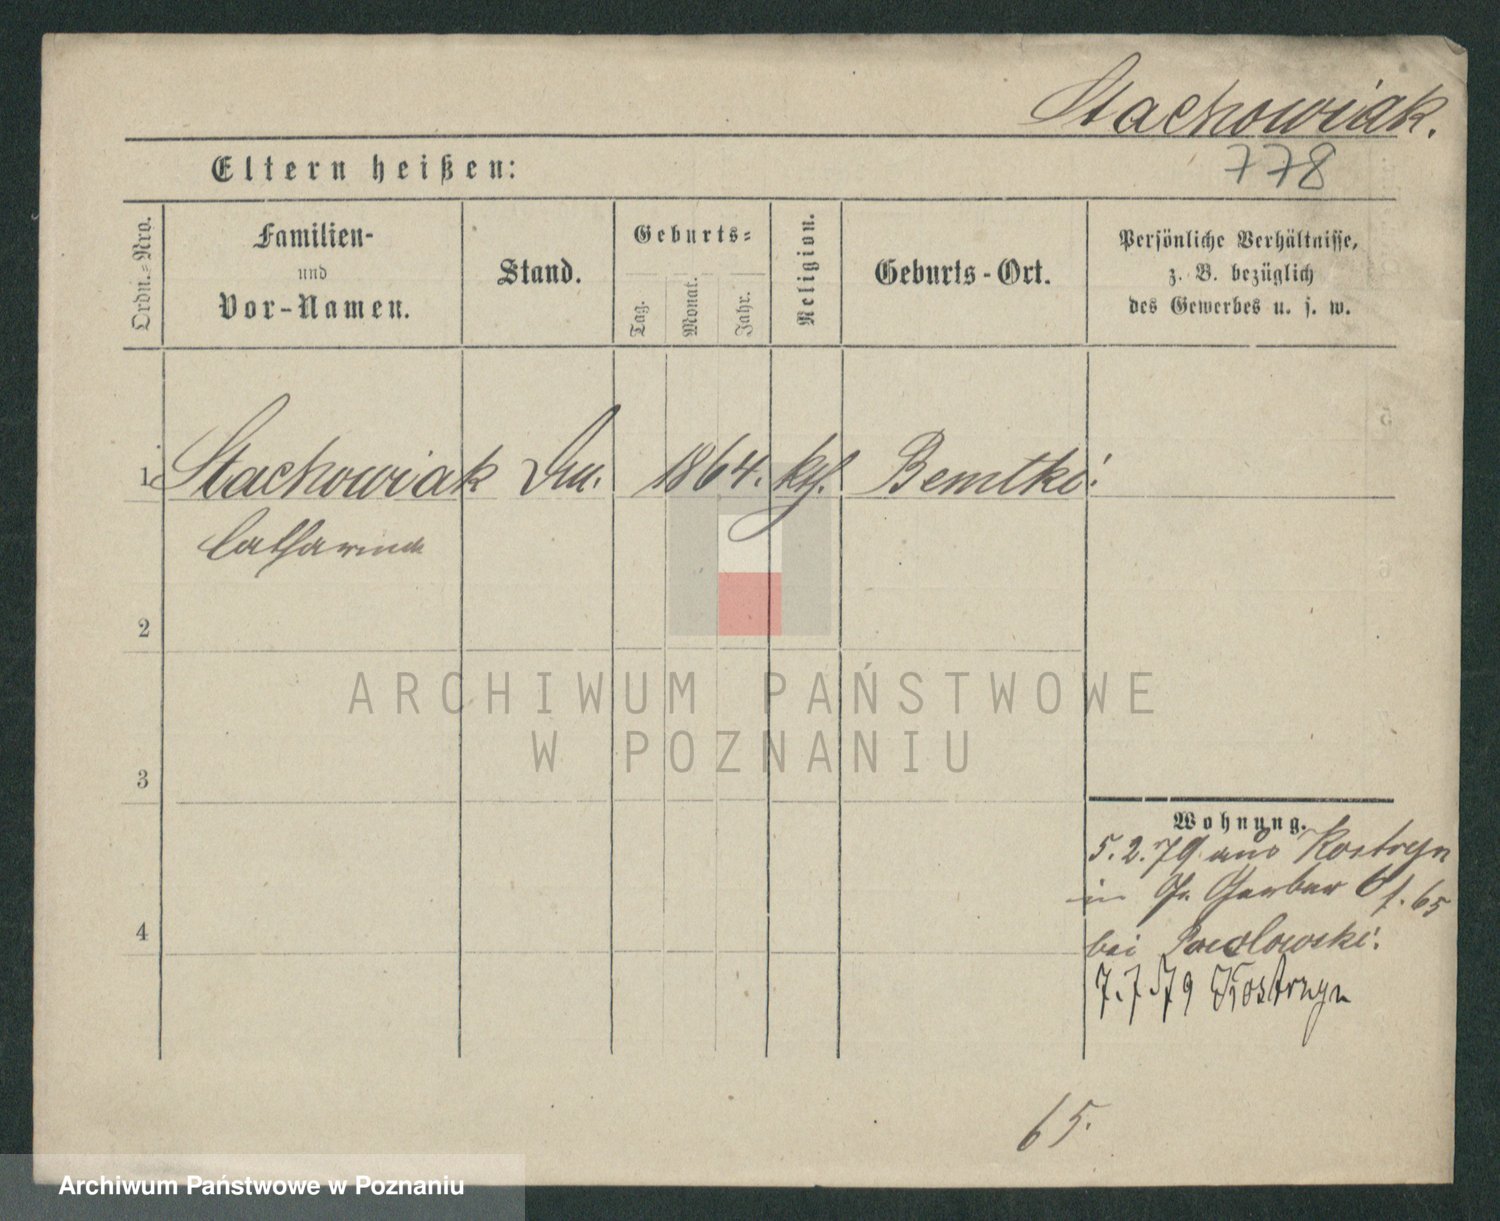 Stachowiak.
Eltern heißen:
778
Ordn.=Nro.
Familien-
und
Vor-Namen.
Stand.
Geburts=
Tag.
Monat.
Jahr.
Religion.
Geburts-Ort.
Persönliche Verhältnisse,
z. B. bezüglich
des Gewerbes u. s. w.
1 Stachowiak 1864. kth. Bemtki
Catharina
2
3
4
Wohnung.
5.2.79 aus Kostrzyn
in Gr. Gerber
bei
7.7.79 Kostrzyn
65.
ARCHIWUM PAŃSTWOWE
W POZNANIU
Archiwum Państwowe w Poznaniu